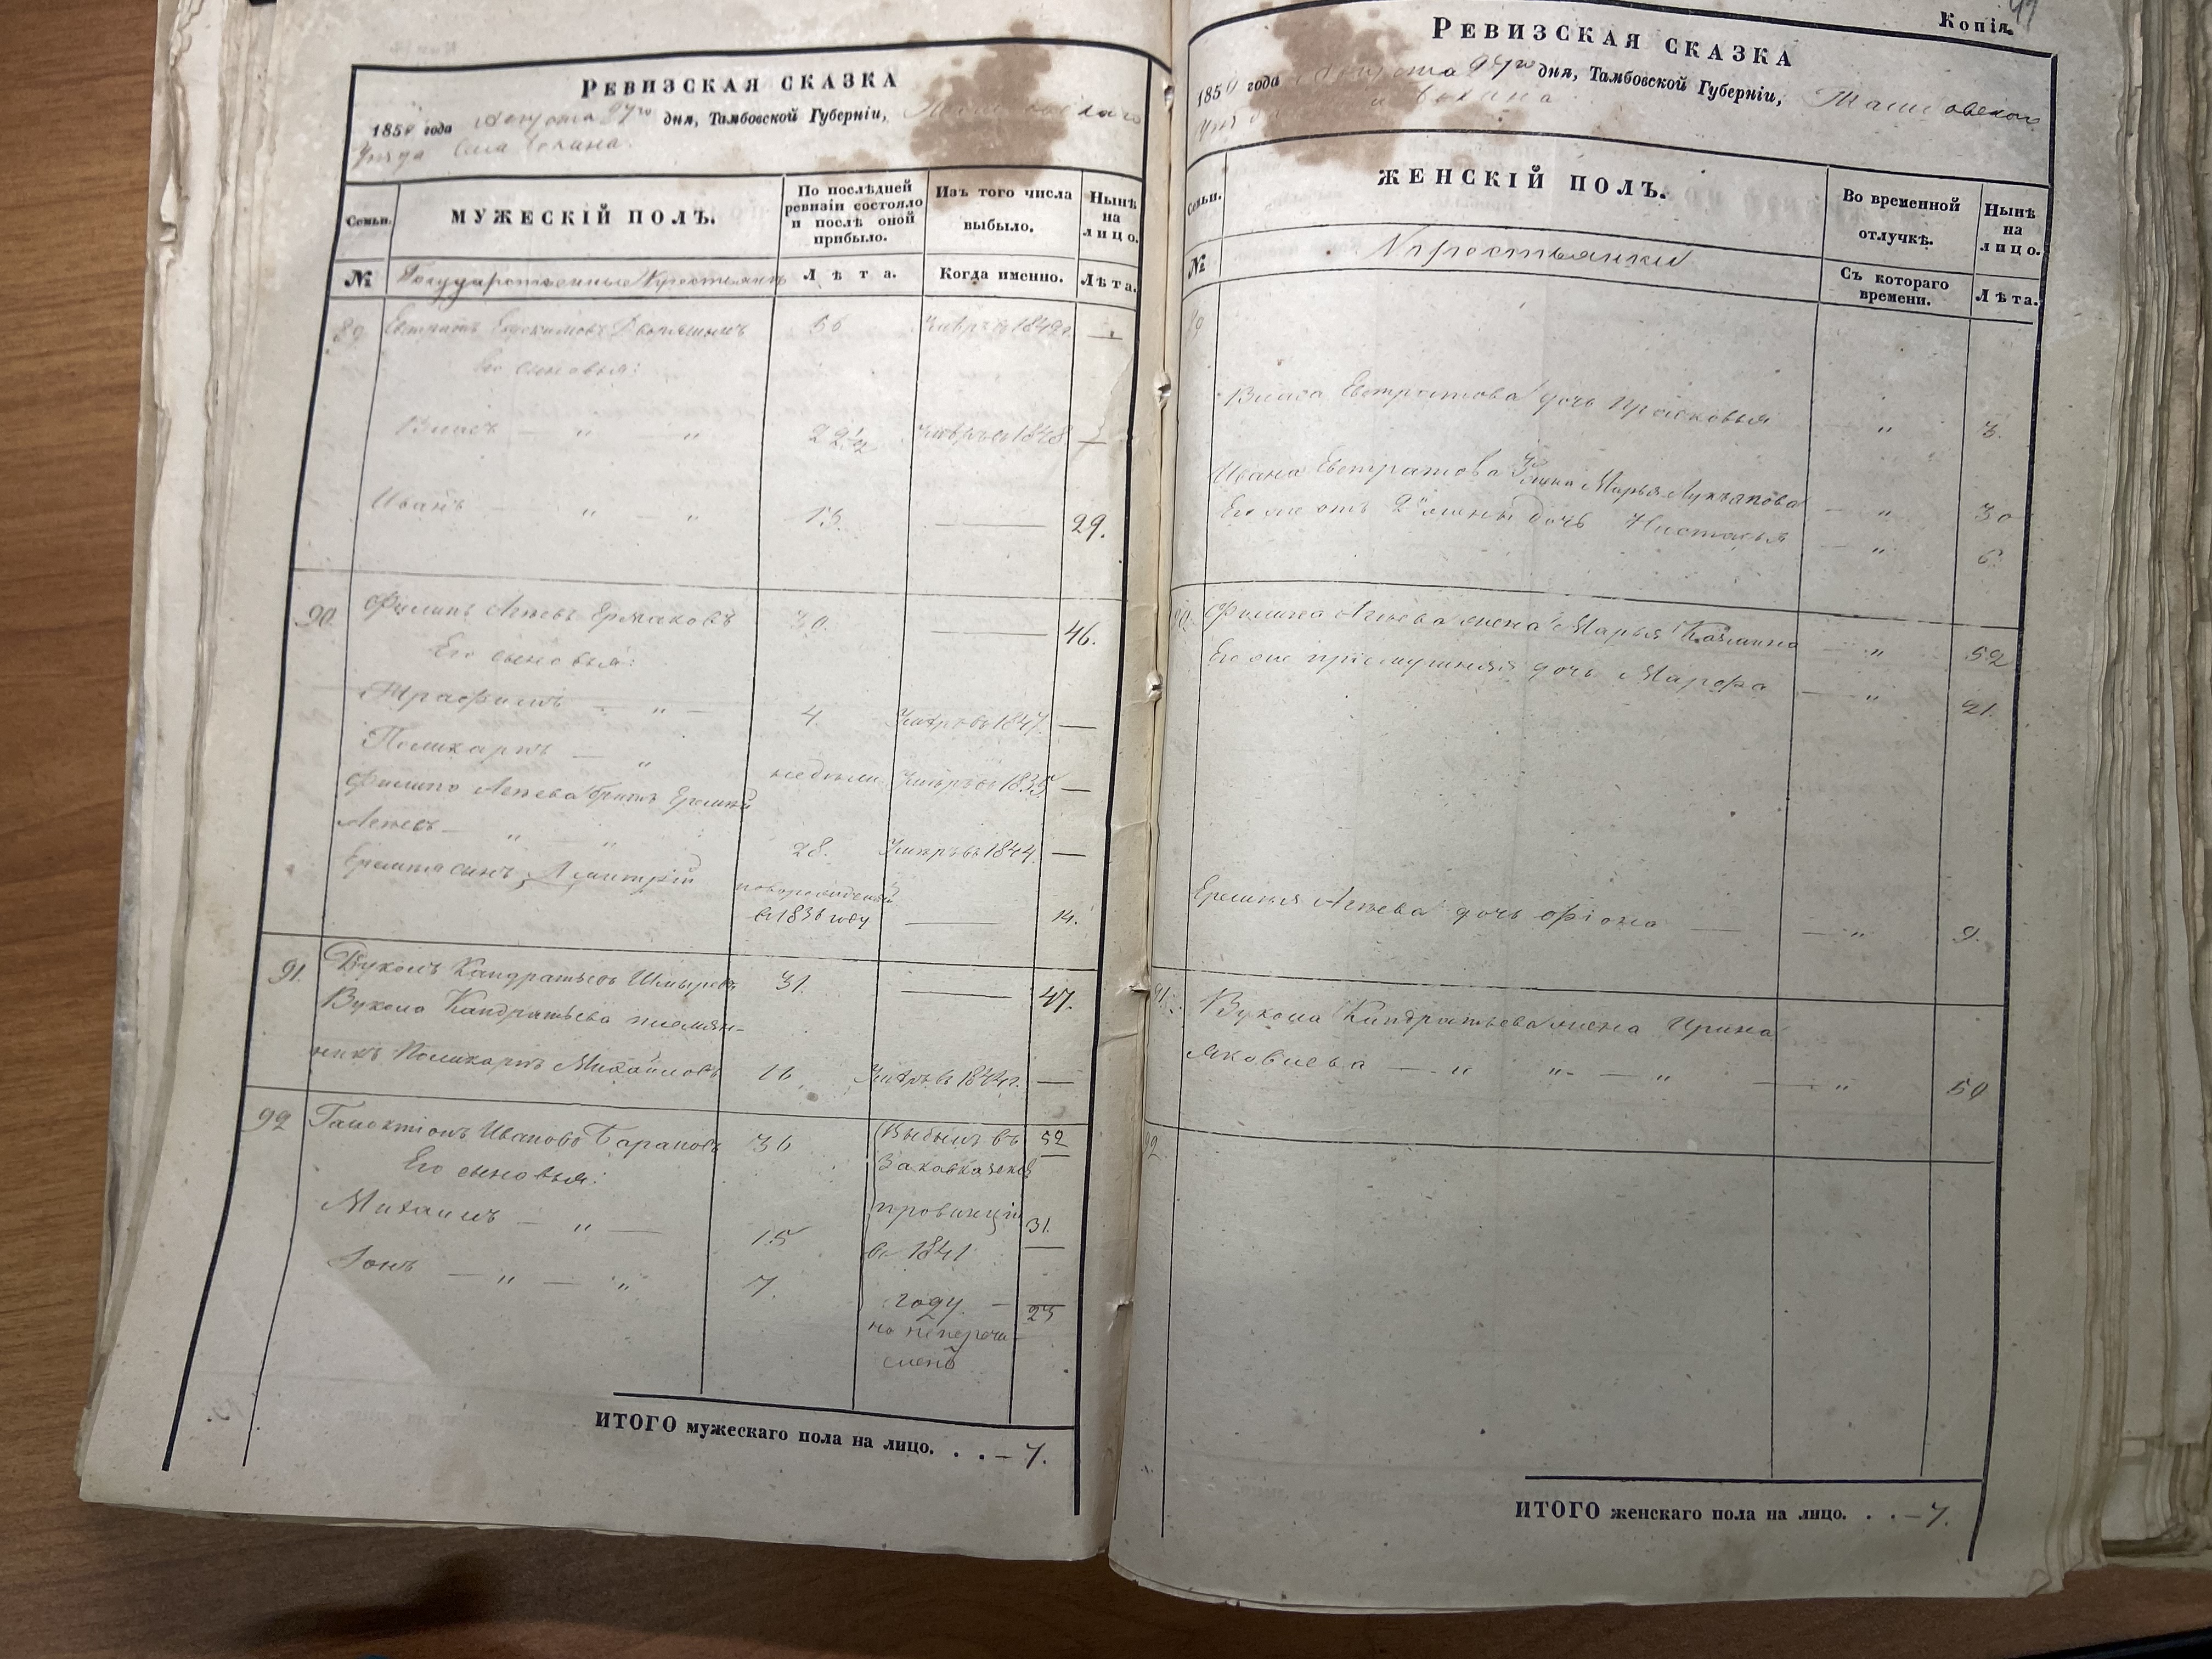 Ревизская сказка
1850 года Августа 27го дня, Тамбовской Губернiи,
уезда Села
Семьи.
МУЖЕСКІЙ ПОЛЪ.
По послѣдней ревизіи состояло и послѣ оной прибыло.
Изъ того числа выбыло.
Нынѣ на лицо.
№
Государственные Крестьяне
Лѣта.
Когда именно.
Лѣта.
89. Евтратъ Евдокимовъ 56 Умеръ въ 1849г. —
Его сыновья:
Власъ — " — " 22½ Умеръ въ 1848 —
Иванъ — " — " 13. — 29.
90. Филипъ Агѣевъ Ермаковъ 30. — 46.
Его сыновья:
Трафимъ — " — 4. Умеръ въ 1847. —
Поликарпъ — " недѣли Умеръ въ 1835 —
Филипа Агѣева братъ Еремѣй
Агѣевъ — " — " 28. Умеръ въ 1844. —
Еремѣя сынъ Дмитрій новорожденный
въ 1836 году — 14.
91. Вуколъ Кандратьевъ Шмыревъ 31. — 47.
Вукола Кандратьева племян-
никъ Поликарпъ Михайловъ 16. Умеръ въ 1844г. —
92 Галактіонъ Ивановъ Барановъ 36 Выбылъ въ 52
Его сыновья: Закавказскія
Михаилъ — " — 15 провинціи 31.
въ 1841
Іонъ — " — " 7. году — 23
но неперечи-
сленъ
ИТОГО мужескаго пола на лицо. . . — 7.
Копія.
Ревизская сказка
1850 года Августа 27го дня, Тамбовской Губерніи,
Семьи.
ЖЕНСКІЙ ПОЛЪ.
Во временной отлучкѣ.
Нынѣ на лицо.
№
Крестьянки
Съ котораго времени.
Лѣта.
89
Власа Евтратова дочь Прасковья — " 3.
Ивана Евтратова 2я жена Марья Лукьянова — " 30
Его же отъ 2й жены дочь Настасья — " 6.
90. Филипа Агѣева жена Марья Казмина — " 52
Его же дочь Марфа — " 21.
Еремѣя Агѣева дочь Фіона — — " 9.
91. Вукола Кандратьева жена Ирина
Яковлева — " " — " — " 50
92.
ИТОГО женскаго пола на лицо. . . — 7.